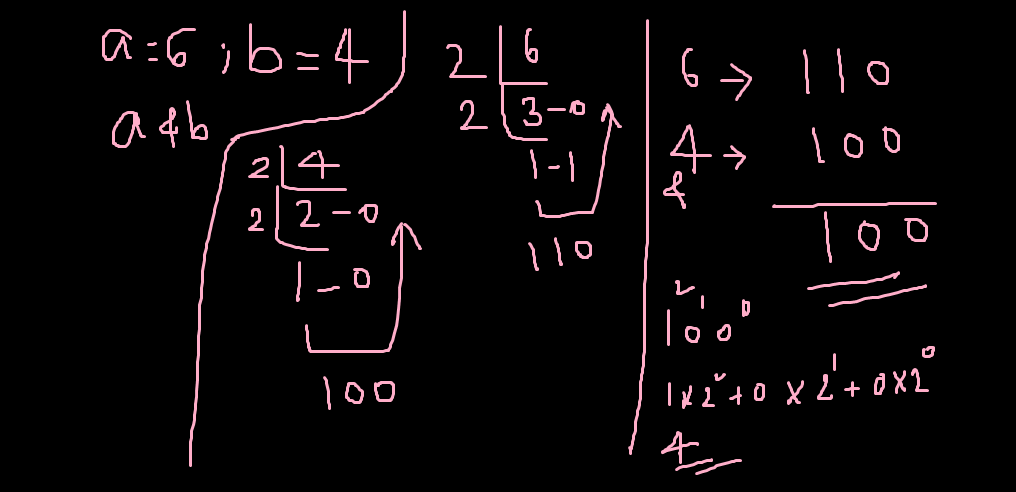 a=6 ; b=4
a&b
2 4
2 2-0
1-0
100
2 6
2 3-0
1-1
110
6 → 110
4 → 100
&
100
1²0¹0⁰
1×2²+0×2¹+0×2⁰
4